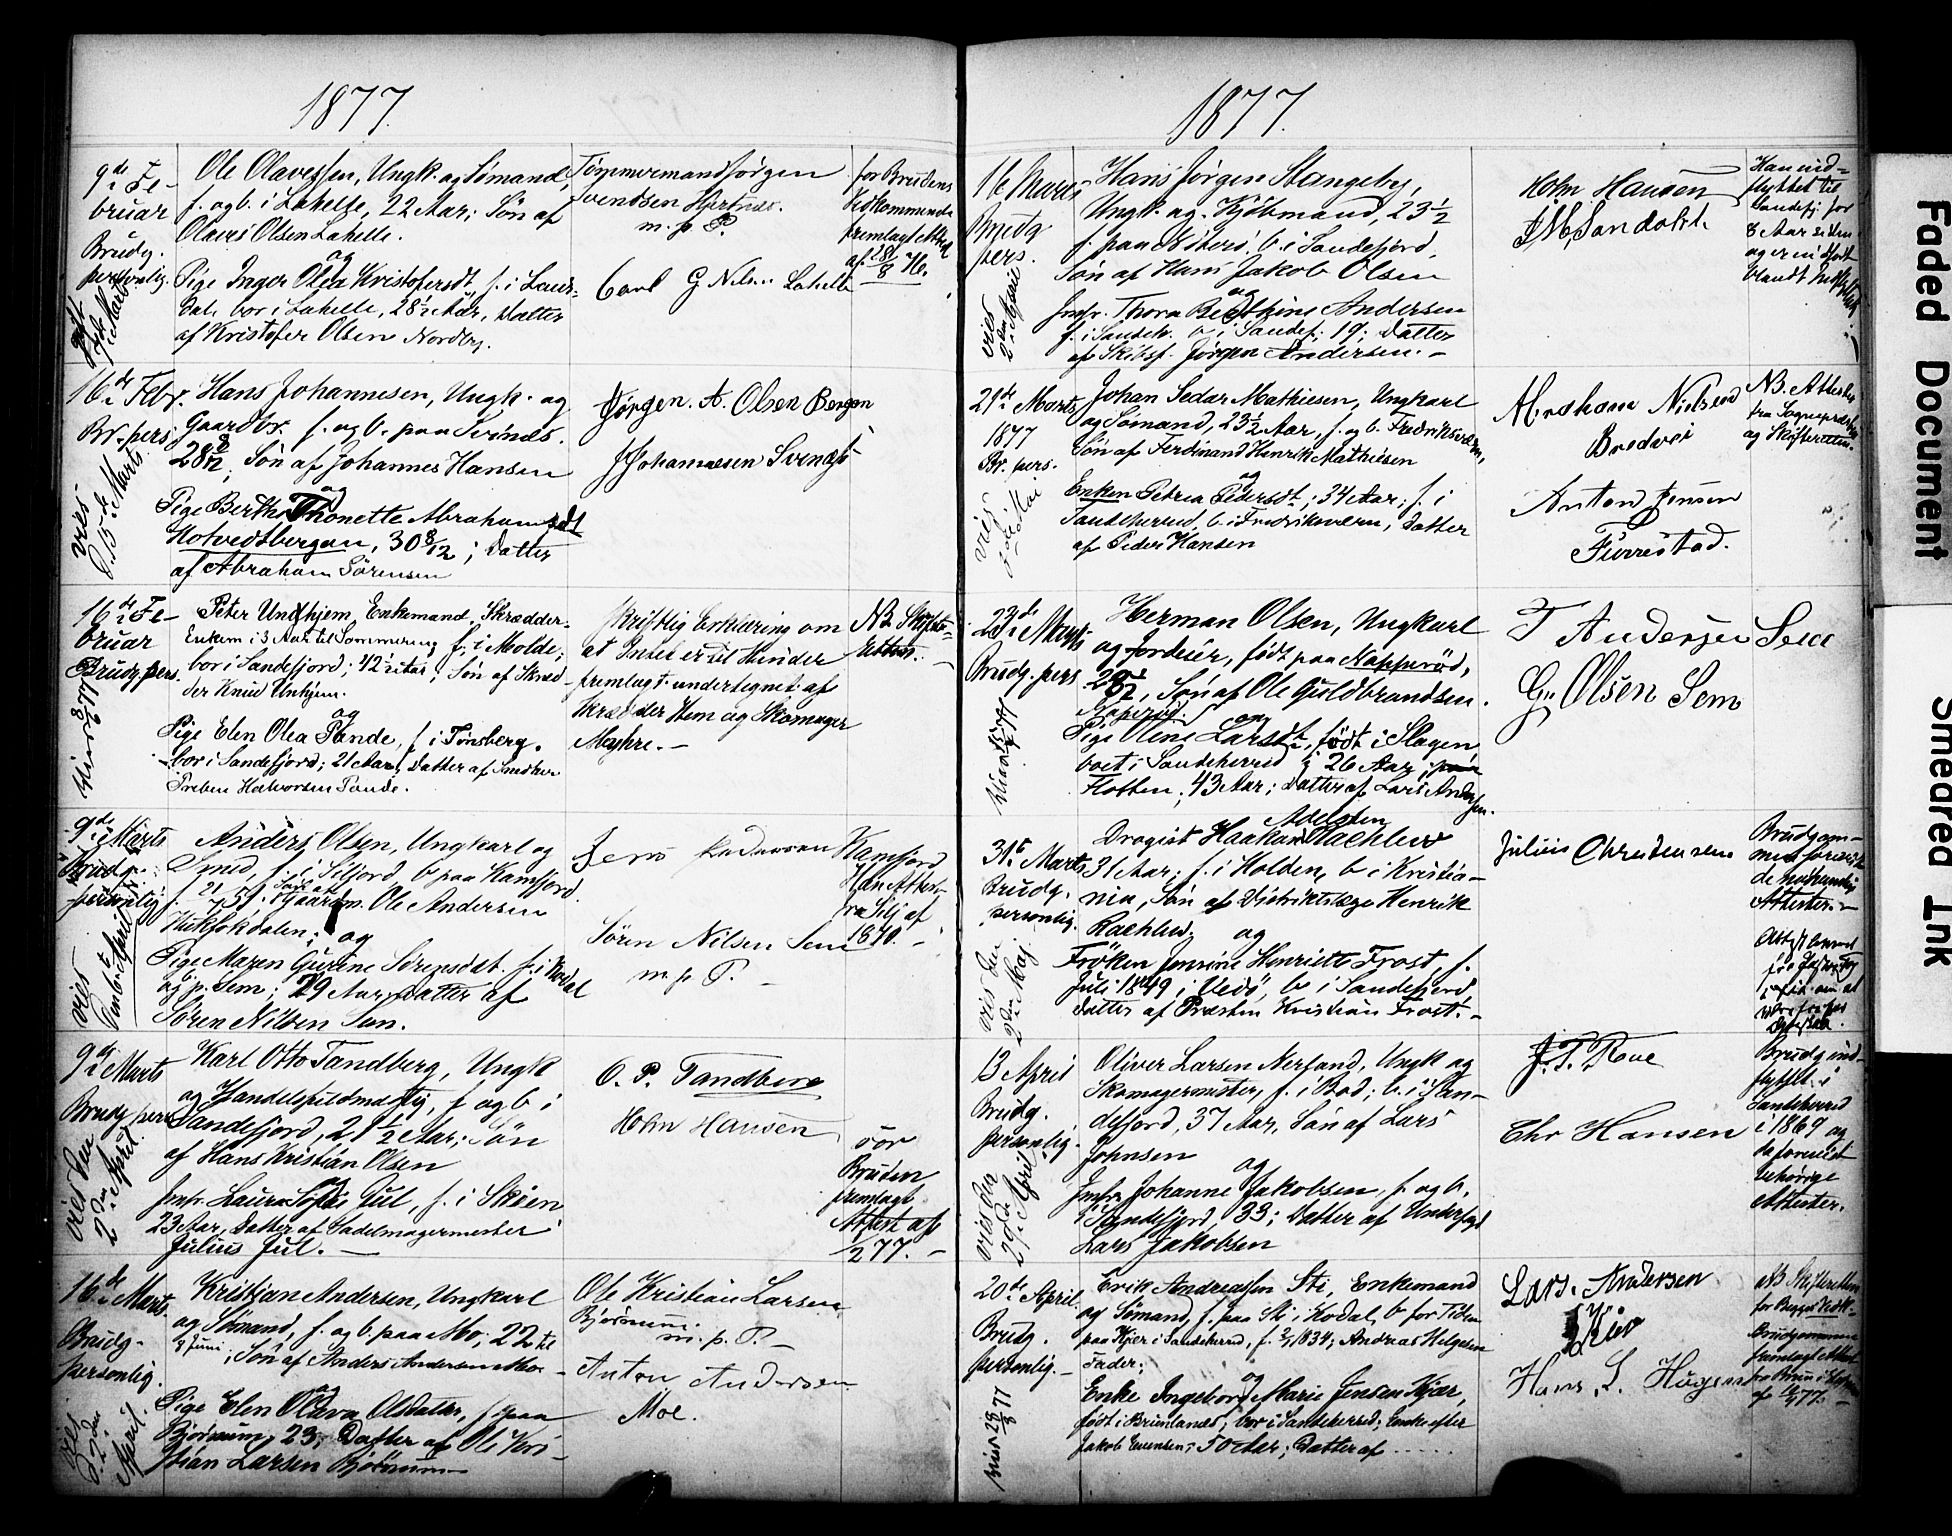 1877.
9de Fe-
bruar
Brudg.
personlig.
Ole Olavessen, Ungk. og Sømand,
f. og b. i Lahelle, 22 Aar; Søn af
Olaves Olsen Lahelle.
og
Pige Inger Olea Kristofersdt, f. i Laur-
dal, bor i Lahelle, 28½ Aar, Datter
af Kristofer Olsen Nordby.
Tømmermand Jørgen
Svendsen Hjertnæs.
m. p. P.
Carl G Nilsen Lahelle
for Brudens
Vedkommende
fremlagt Attest
af
16de Febr.
Br. pers.
viet
d. 15de Marts
Hans Johannesen, Ungk. og
Gaardbr. f. og b. paa Svinæs.
28 8/12, Søn af Johannes Hansen
og
Pige Berthe Thonette Abrahamsdt
Hotvedtbergan, 30 8/12; Datter
af Abraham Sørensen
Jørgen. A. Olsen Bergan
J Johannesen Svinæs
16de Fe-
bruar
Brudg. pers.
Peter Undhjem, Enkemand, Skrædder-
Enkem i 3 Aar til Sommeren f. i Molde;
bor i Sandefjord; 42½ Aar, Søn af Skræd-
der Knud Unhjem.
og
Pige Elen Olea Tande, f. i Tønsberg.
bor i Sandefjord; 21 Aar; Datter af Snedker
Preben Halvorsen Tande.
Skriftlig Erklæring om
at Intet er til Hinder
fremlagt undertegnet af
Skrædder Hem og Skomager
Myhre. -
NB. Skifte-
Attest. -
9de Marts
Brudg.
personlig.
viet
Anders Olsen, Ungkarl og
Smed, f. i Siljord, b paa Kamfjord.
Søn af
Gaardm. Ole Andersen
og
Pige Maren Gurine Sørensdt. f. i Kodal
og b. p. Sem; 29 Aar, Datter af
Søren Nilsen Sem.
Jens
Søren Nilsen Sem
m. p. P. -
Kamfjord
Han Attest
fra Silj. af
1870. -
9de Marts
Brudg. pers.
viet den
2den April.
Karl Otto Tandberg, Ungk
og Handelsfuldmægtig, f. og b i
Sandefjord, 21½ Aar; Søn
af Hans Kristian Olsen
og
Jmfr. Laura Sofie Jul, f. i Skien
23 Aar, Datter af Sadelmagermester
Julius Jul. -
O. P. Tandberg
Hohn Hansen
for
Bruden
fremlagt
Attest af
/2 77. -
16de Marts
Brudg.
personlig.
viet
d. 2den
April.
Kristian Andersen, Ungkarl
og Sømand, f. og b. paa Mo; 22 til
8 Juni; Søn af Anders Andersen Mo. -
og
Pige Elen Olava Olsdatter, f. paa
Bjørnum, 23; Datter af Ole Kris-
tian Larsen Bjørnum
Ole Kristian Larsen
Bjørnum.
m. p. P. -
Anton Andersen
Moe.
1877.
16 Marts
Brudg
pers.
viet
2den April
Hans Jørgen Stangeby,
Ungk. og Kjøbmand, 23½
f. paa Nøterø, b. i Sandefjord,
Søn af Hans Jakob Olsen
og
Jmfr. Thora Andersen
f. i Sandeh. b. i Sandef; 19; Datter
af Skibsf. Jørgen Andersen. -
Hohn Hansen
J M Sandahl.
Han ind-
flyttet til
Sandefj. for
8 Aar siden
og er indført
blandt Indflyttede
21de Marts
1877
Br. pers.
viet
Johan Peder Mathiesen, Ungkarl
og Sømand, 23½ Aar, f. og b. Fredriksværn,
Søn af Ferdinand Henrik Mathiesen
og
Enken Petrea Pedersdt; 34 Aar; f. i
Sandeherred, b. i Fredriksværn, Datter
af Peder Hansen
Abraham Nielsen
Bredvei
Anton Jensen
Furrestad.
NB. Attester
fra Sognepræsten
og Skifteretten.
23de Marts
Brudg. pers
Herman Olsen, Ungkarl
og Jordeier, født paa Napperød,
Søn af Ole Guldbrandsen.
Naperød.
og
Pige Oline Larsdt, født i Slagen
boet i Sandeherred i 26 Aar, paa
Flotten; 43 Aar; Datter af Lars Andersen.
T Andersen Sem
G. Olsen Sem
31te Marts
Brudg.
personlig.
viet den
2den Maj
Adelsten
Drogist Haakon Rachlew
31 Aar; f. i Holden, b i Kristia-
nia, Søn af Distriktslæge Henrik
Rachlew.
og
Frøken Jensine Henriette Frost, f.
Juli 1849 i Vedø, b i Sandefjord
Datter af Præsten Kristian Frost. -
Julius Christensen
Brudgom-
men foreviste
de nødvendige
Attester. -
13 April
Brudg.
personlig.
viet den
29de April
Oliver Larsen Nerland, Ungk og
Skomagermester, f. i Bod; b. i San-
defjord, 37 Aar, Søn af Lars
Johnsen
og
Jmfr. Johanne Jakobsen, f. og b.
i Sandefjord, 33; Datter af Underfgd
Lars Jakobsen
J. P. Roe
Chr Hansen
Brudg ind-
flyttet i
Sandeherred
i 1869 og
da forevist
behørige
Attester.
20de April.
Brudg.
personlig. -
viet 28/8 77
Erik Andreassen Sti, Enkemand
og Sømand, f. paa Sti i Kodal, b. for Tiden
paa Kjær i Sandeherred, f. 1834; Andreas Helgesen
Fader;
og
Enke Ingeborg Marie Jensen Kjær,
født i Brunlanæs, bor i Sandeherred; Enke efter
Jakob Evensen; 50 Aar; Datter af . . . . .
Lars. Andersen
Kjær
Hans L. Haugen
NB. Skifteattest
for Begges Vedk. -
Brudgommen
fremlagt Attest
Faded Document
Smeared Ink